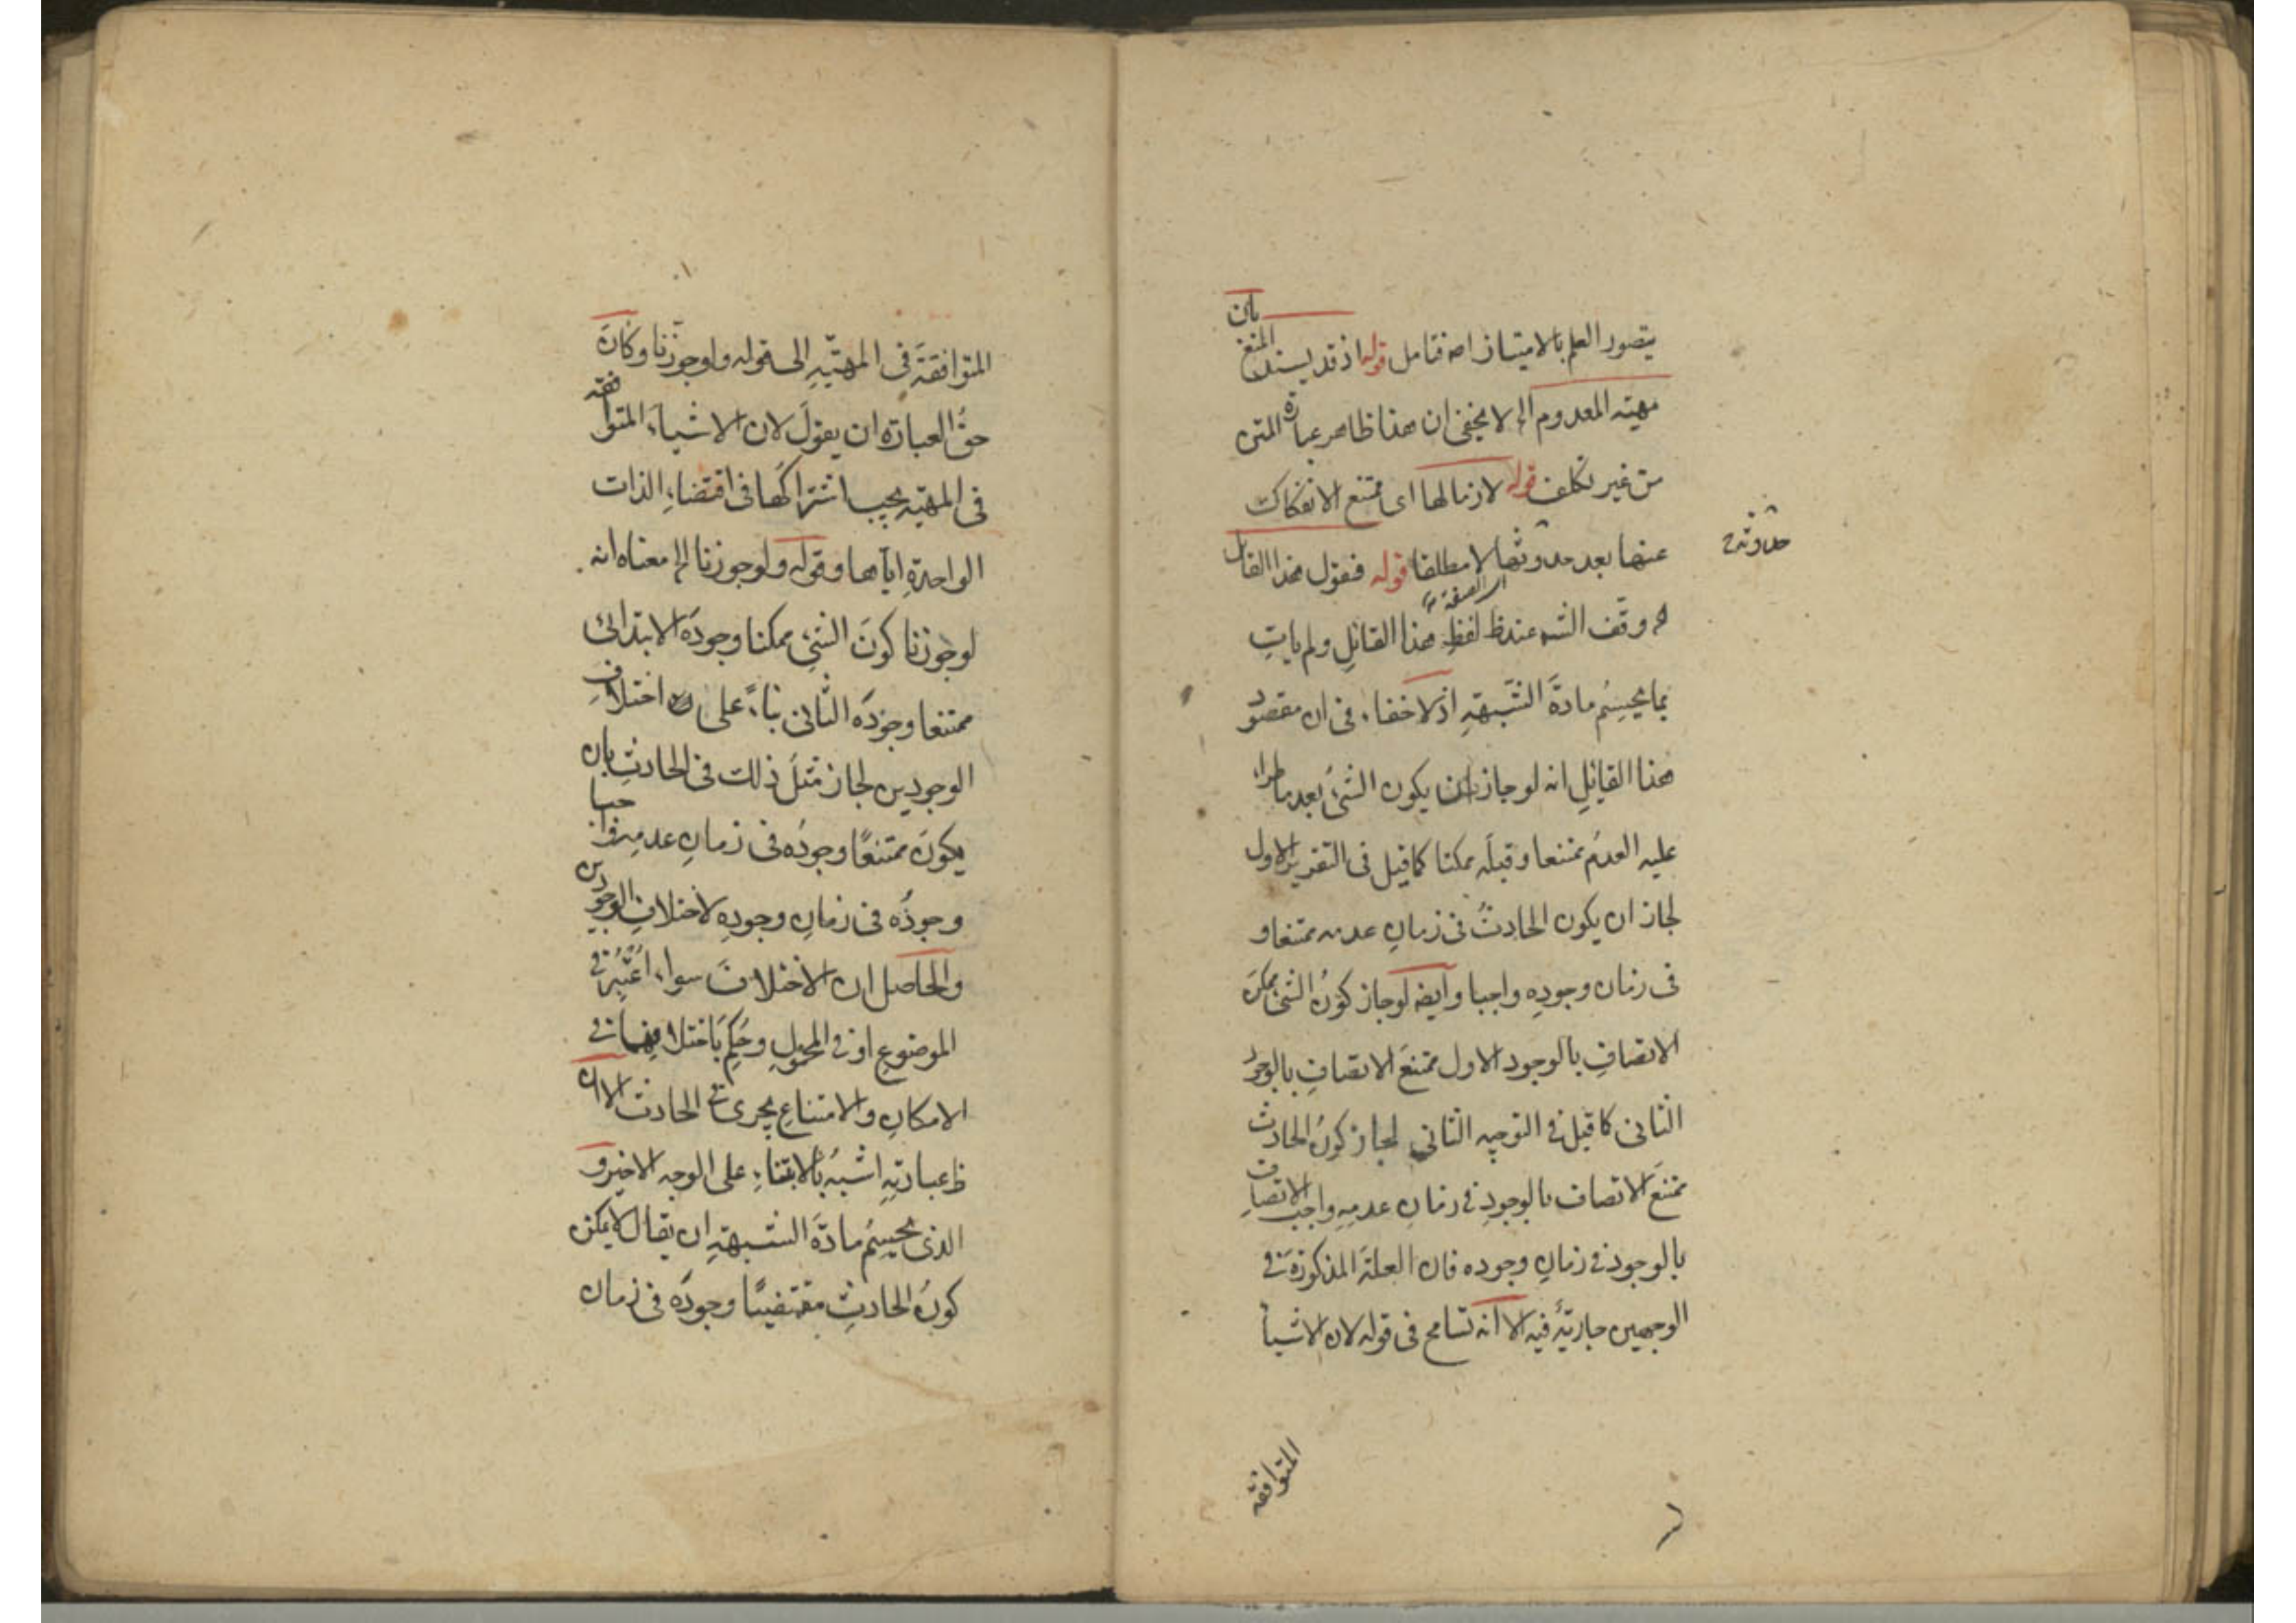 يتصور العلم بالامتياز اصه فتامل قوله اذ قد يسند المنع بان
مهية المعدوم الخ لا يخفى ان هذا ظاهر عبارة المتن
من غير تكلف قوله لازما لها اى ممتنع الانفكاك
عنها بعد حدوثها لا مطلقا قوله فنقول هذا القائل
حدوثه
وقف الشه عند ظ لفظ هذا القائل ولم يات
بما يحسم مادة الشبهة اذ لا خفاء فى ان مقصود
هذا القائل انه لو جاز ان يكون الشئ بعد ما طراء
عليه العدم ممتنعا وقبله ممكنا كما قيل فى التقرير الاول
لجاز ان يكون الحادث فى زمان عدمه ممتنعا و
فى زمان وجوده واجبا وايضه لو جاز كون الشئ ممكن
الاتصاف بالوجود الاول ممتنع الاتصاف بالوجود
الثانى كما قيل فى التوجيه الثانى لجاز كون الحادث
ممتنع الاتصاف بالوجود فى زمان عدمه واجب الاتصاف
بالوجود فى زمان وجوده فان العلة المذكورة فى
الوجهين جارية فيه الا انه تسامح فى قوله لان الاشيا
المتوافقه
المتوافقة فى المهية الى قوله ولو جوزنا وكان
حق العبارة ان يقول لان الاشياء المتوافقه
فى المهية يجب اشتراكها فى اقتضاء الذات
الواحدة اياها وقوله ولو جوزنا الخ معناه انه
لو جوزنا كون الشئ ممكنا وجوده الابتدائى
ممتنعا وجوده الثانى بناء على اختلاف
الوجودين لجاز مثل ذلك فى الحادث بان
يكون ممتنعا وجوده فى زمان عدمه واجبا
وجوده فى زمان وجوده لاختلاف الوجودين
والحاصل ان الاختلاف سواء اعتبر فى
الموضوع او فى المحمول وحكم باختلافهما فى
الامكان والامتناع يجرى فى الحادث الا ان
ظ عبارته اشبه بالابتناء على الوجه الاخير و
الذى يحسم مادة الشبهة ان يقال لا يمكن
كون الحادث مقتضيا وجوده فى زمان